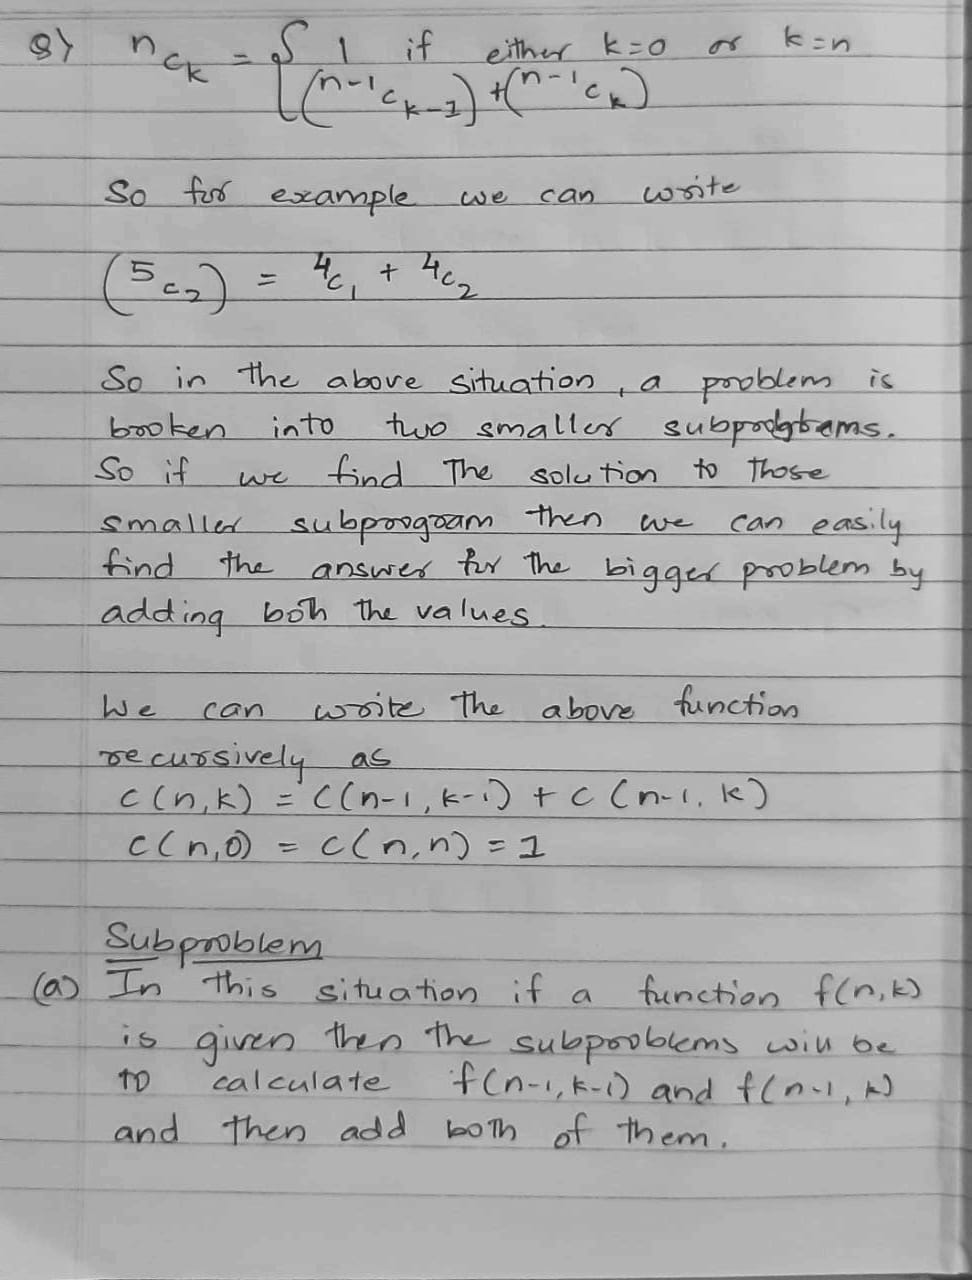 8) nCk = { 1 if either k=0 or k=n
(n-1Ck-1) + (n-1Ck)
So for example we can write
(5C2) = 4C1 + 4C2
So in the above situation, a problem is
broken into two smaller
So if we find The solution to those
smaller subprogram then we can easily
find the answer for the bigger problem by
adding both the values.
We can write the above function
recursively as
C(n,k) = C(n-1, k-1) + C(n-1, k)
C(n,0) = C(n,n) = 1
Subproblem
(a) In this situation if a function f(n,k)
is given then the subproblems will be
to calculate f(n-1, k-1) and f(n-1, k)
and then add both of them.